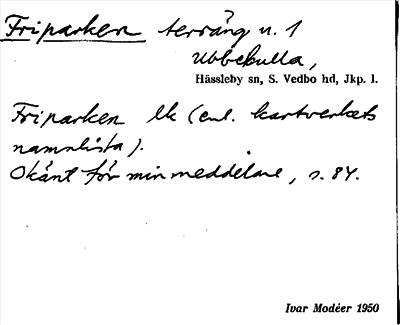 Friparken terräng n. 1
Ubbekulla,
Hässleby sn, S. Vedbo hd, Jkp. l.
Friparken lk (enl. kartverkets
namnlista).
Okänt för min meddelare, s. 84.
Ivar Modéer 1950